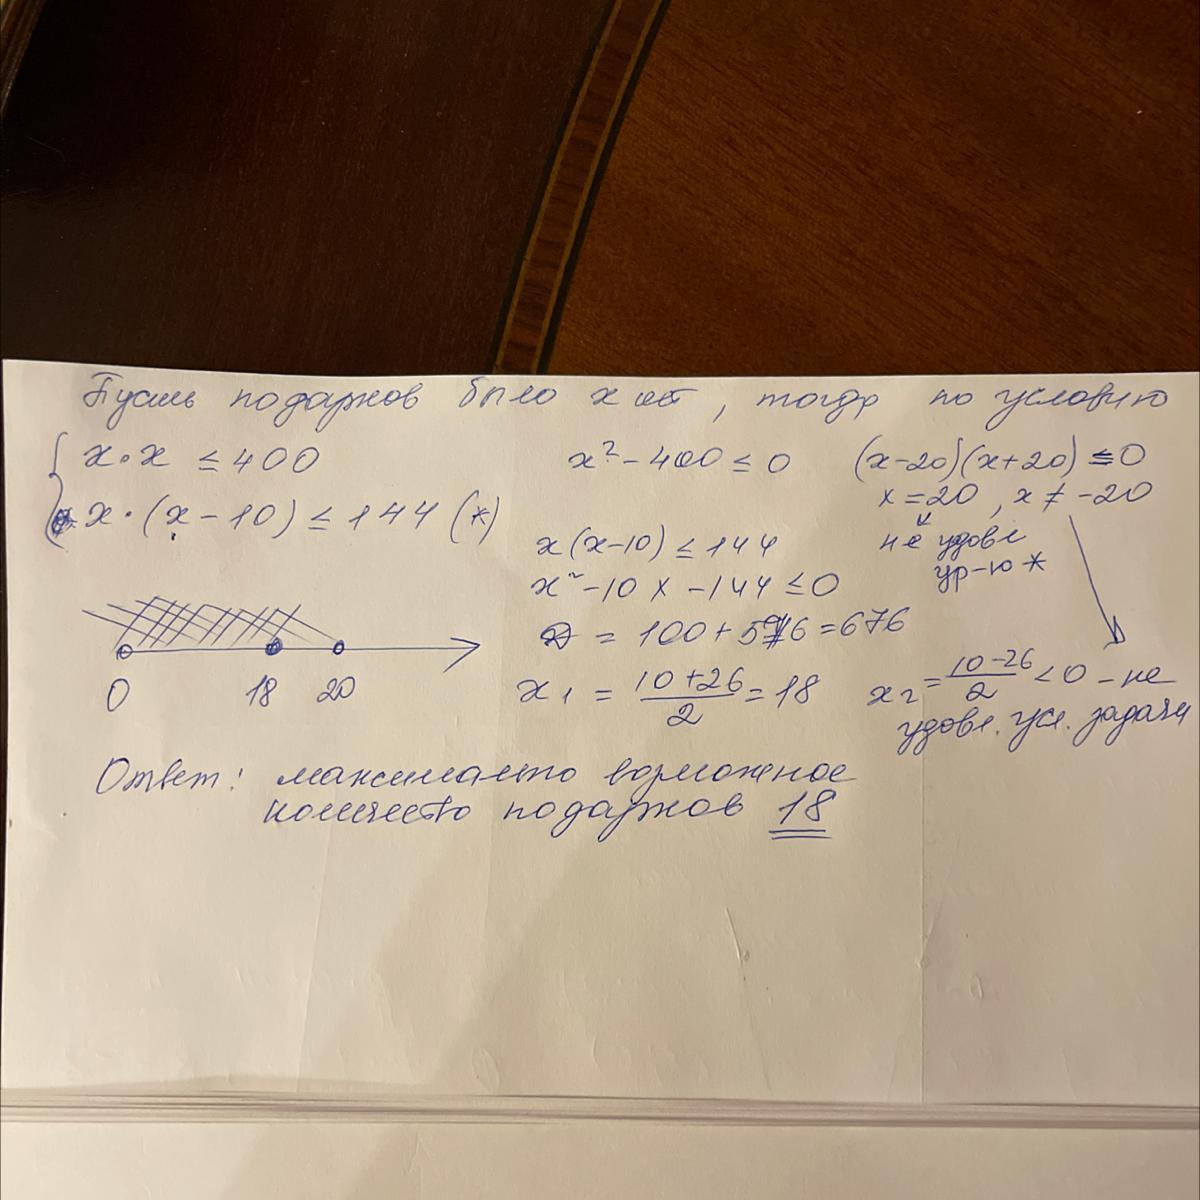 Пусть подарков было х шт, тогда по условию
{ x·x ≤ 400
x·(x-10) ≤ 144 (*)
x²-400 ≤ 0
(x-20)(x+20) ≤ 0
x = 20, x ≠ -20
не удовл
ур-ю *
x(x-10) ≤ 144
x²-10x-144 ≤ 0
D = 100+576=676
x₁ = (10+26)/2 = 18
x₂ = (10-26)/2 < 0 - не
удовл. усл. задачи
0 18 20
Ответ: максимально возможное
количество подарков 18